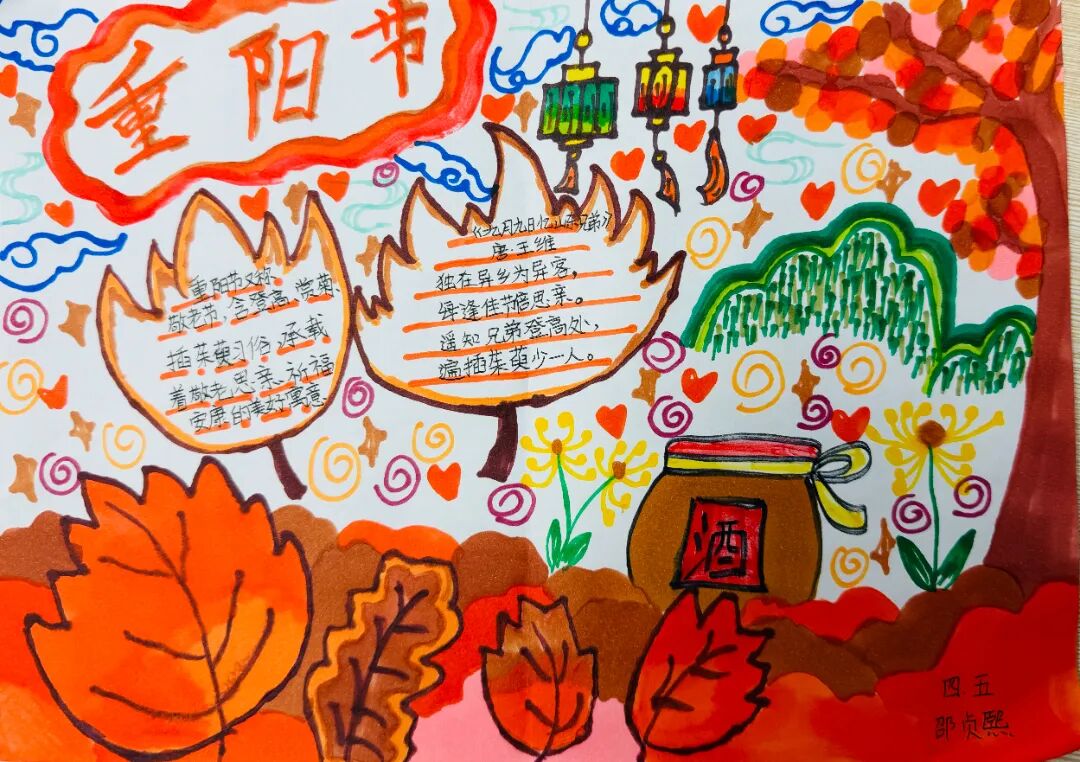 重阳节
重阳节又称
敬老节，含登高、赏菊
插茱萸习俗，承载
着敬老、思亲、祈福
安康的美好寓意
《九月九日忆山东兄弟》
唐·王维
独在异乡为异客，
每逢佳节倍思亲。
遥知兄弟登高处，
遍插茱萸少一人。
酒
四五
邵贞熙